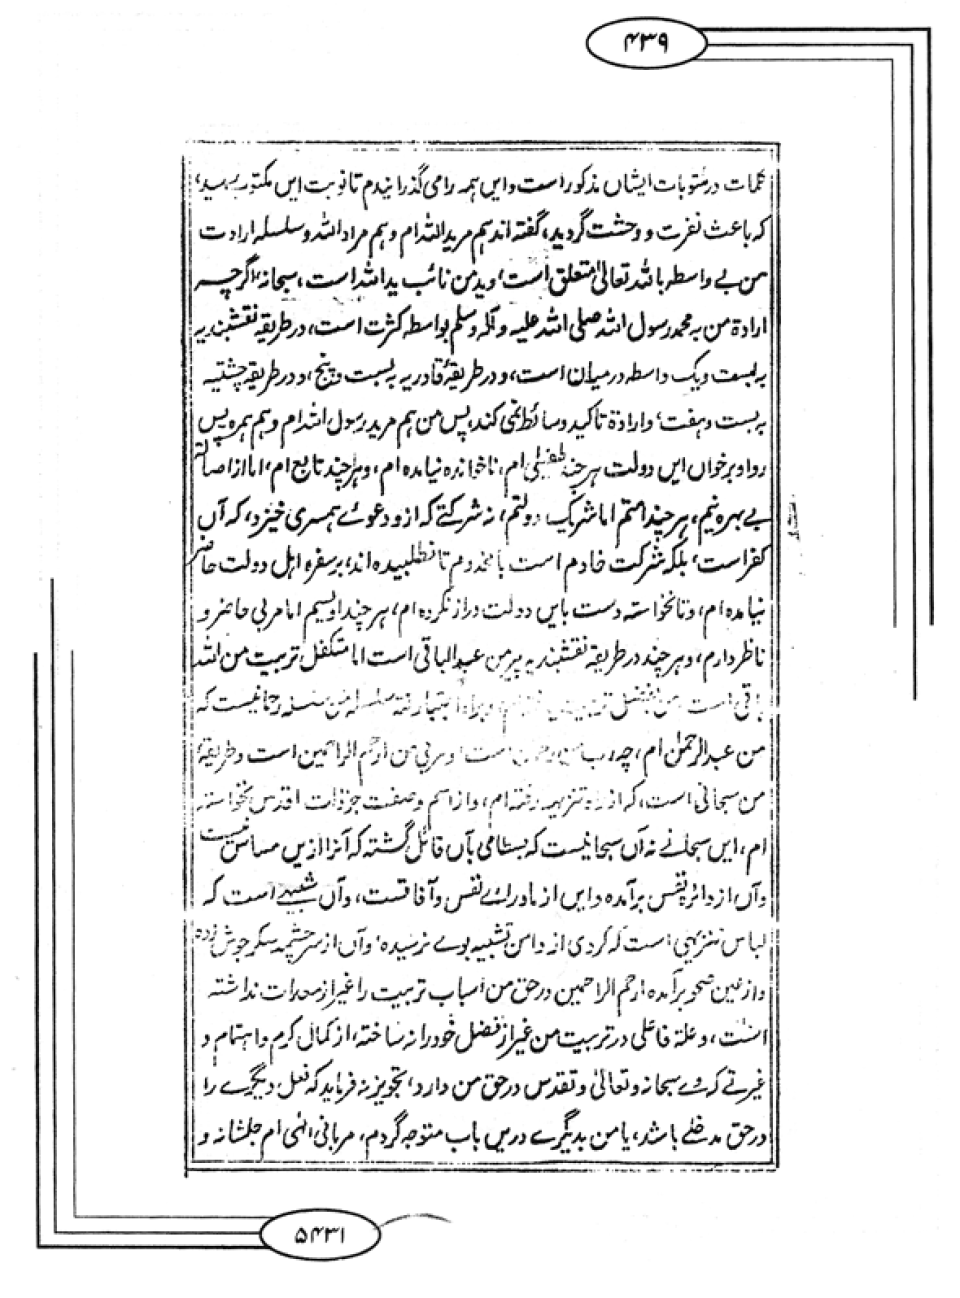 ۴۳۹
کلمات در مکتوبات ایشاں مذکور است و ایں ہمہ را می گذرانیدم تا نوبت ایں مکتوب رسید،
کہ باعث نفرت و وحشت گردید، گفتہ اند ہم مرید اللہ ام و ہم مراد اللہ و سلسلہ ارادت
من بے واسطہ باللہ تعالیٰ متعلق است، وید من نائب ید اللہ است، سبحانہ، اگرچہ
ارادۃ من بہ محمد رسول اللہ صلی اللہ علیہ وآلہ وسلم بواسطہ کثرت است، در طریقہ نقشبندیہ
بہ بست ویک واسطہ درمیان است، و در طریقۂ قادریہ بہ بست و پنج، و در طریقہ چشتیہ
بہ بست و ہفت، وارادۃ تاکید وسائط نمی کند، پس من ہم مرید رسول اللہ ام وہم ہمرہ پس
رو او برخوان ایں دولت ہر چند طفیلی ام، ناخواندہ نیامدہ ام، وہر چند تابع ام، اما از اصالتم
بے بہرہ نیم، ہر چند امتم اما شریک دولتم، نہ شرکتے کہ ازو دعوئے ہمسری خیزد، کہ آں
کفر است، بلکہ شرکت خادم است با مخدوم تا نطلبیدہ اند، بر سفرہ اہل دولت حاضر
نیامدہ ام، و تا نخواستہ دست بایں دولت دراز نکردہ ام، ہر چند اویسیم اما مربی حاضر و
ناظر دارم، وہر چند در طریقہ نقشبندیہ پیر من عبد الباقی است اما متکفل تربیت من اللہ
باقی است من بفضل تربیت
من عبد الرحمٰن ام، چہ، رب من است و مربی من ارحم الراحمین است و طریقۂ
من سبحانی است، کہ از راہ تنزیہ رفتہ ام، و از اسم و صفت جز ذات اقدس نخواستہ
ام، ایں سبحانے نہ آں سبحانیست کہ بسطامی بآں قائل گشتہ کہ آنرا ازیں مساس نیست
وآں از دائرہ نفس برآمدہ و ایں از ماورائے نفس وآفاقست، وآں تشبیہے است کہ
لباس تنزیہی است کہ گردی از دامن تشبیہ بوے نرسیدہ، وآں از سر چشمہ سکر جوش زدہ
واز عین صحو برآمدہ ارحم الراحمین در حق من اسباب تربیت را غیر از معدات نداشتہ
است، و علۃ فاعلی در تربیت من غیر از فضل خود را نہ ساختہ، از کمال کرم و اہتمام و
غیرتے کہ وے سبحانہ وتعالیٰ وتقدس در حق من دارد، تجویز نہ فرماید کہ فعل دیگرے را
در حق مدخلے باشد، یا من بدیگرے دریں باب متوجہ گردم، مربائی الٰہی ام جلشانہ و
۵۴۳۱